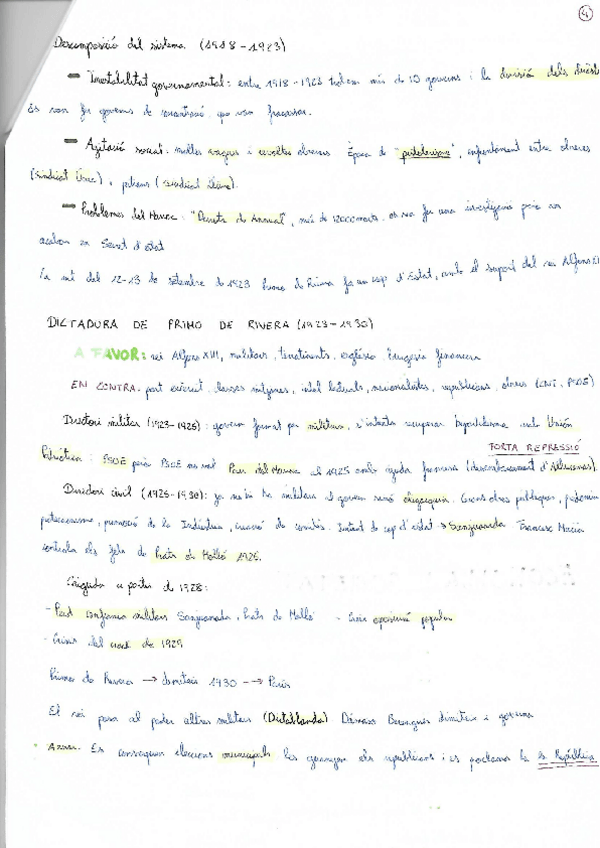 4
Descomposició del sistema (1918-1923)
Inestabilitat governamental: entre 1918-1923 més de 10 governs i la divisió dels
Es van fer governs de concentració que van fracassar.
Agitació social: moltes vagues i revoltes obreres. Època de "pistolerisme", enfrontament entre obrers
(Sindicat Únic), patrons (Sindicat Lliure).
Problemes del Marroc: "Desastre de Annual", més de 12000 morts. es va fer una investigació però va
acabar en Secret d'Estat
La nit del 12-13 de setembre de 1923 Primo de Rivera fa un cop d'Estat, amb el suport del rei Alfons XIII
DICTADURA DE PRIMO DE RIVERA (1923-1930)
A FAVOR: rei Alfons XIII, militars, terratinents, església, burgesia financera
EN CONTRA: part exèrcit, classes mitjanes, nacionalistes, republicans, obrers (CNT, PSOE)
Directori militar (1923-1925): govern format per militars, s'intenta recuperar bipartidisme amb Unión
FORTA REPRESSIÓ
Patriótica i PSOE però PSOE no vol. Pau del Marroc al 1925 amb ajuda francesa (desembarcament d'Alhucemas).
Directori civil (1925-1930): ja no hi ha militars al govern sinó Grans obres públiques,
proteccionisme, promoció de la Indústria, creació de Intent de cop d'estat → Sanjuanada Francesc Macià
controla els fets de Prats de Molló 1926.
Caiguda a partir de 1928:
- Perd confiança militars Sanjuanada, Prats de Molló - Crix oposició popular
- Crisis del crack de 1929
Primo de Rivera → dimiteix 1930 → París
El rei passa al poder altres militars (Dictablanda) Dámaso Berenguer dimiteix i governa
Aznar. Es convoquen eleccions municipals les guanyen els republicans i es proclama la 2a República